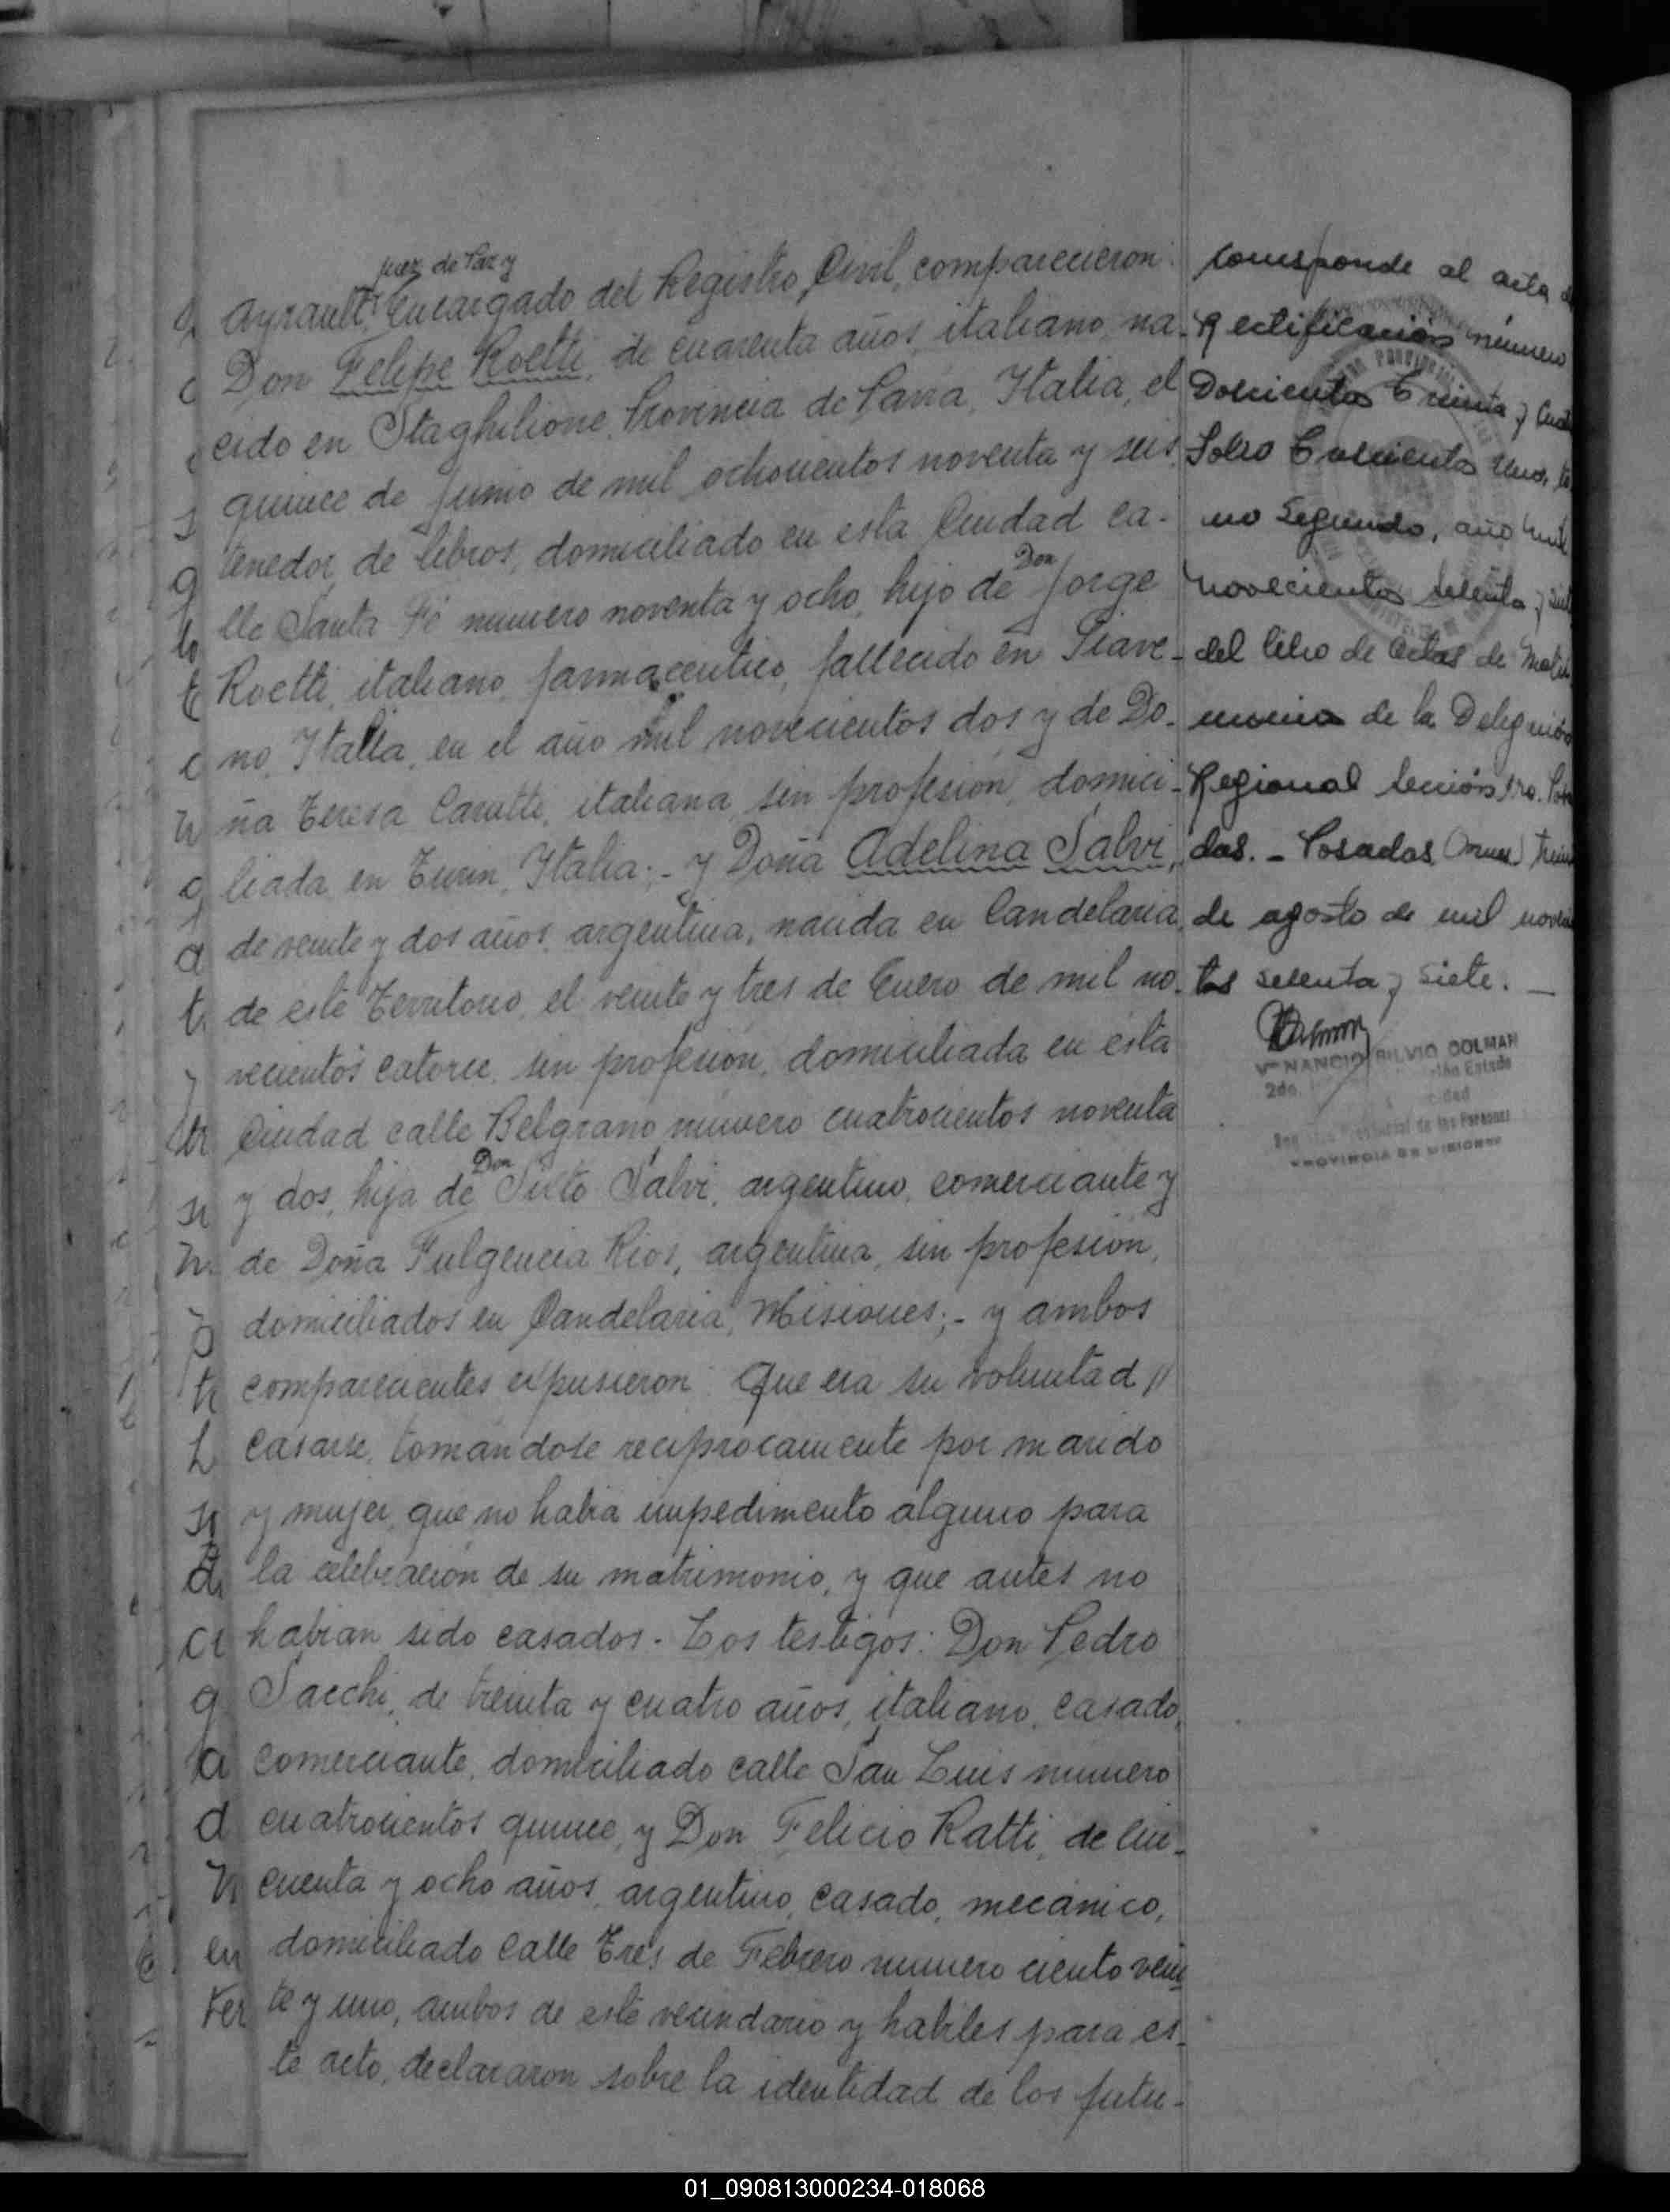 Juez de Paz y
Ayrault, Encargado del Registro Civil, comparecieron:
Don Felipe Roetti, de cuarenta años, italiano, na-
cido en Staghilione, Provincia de Pavia, Italia, el
quince de Junio de mil ochocientos noventa y seis,
tenedor de libros, domiciliado en esta Ciudad ca-
lle Santa Fé numero noventa y ocho, hijo de Don Jorge
Roetti, italiano, farmaceutico, fallecido en Piave-
no, Italia, en el año mil novecientos dos y de Do-
ña Teresa Caratti, italiana, sin profesion, domici-
liada en Turin, Italia;- y Doña Adelina Salvi,
de veinte y dos años, argentina, nacida en Candelaria,
de este Territorio, el veinte y tres de Enero de mil no-
vecientos catorce, sin profesion, domiciliada en esta
Ciudad calle Belgrano numero cuatrocientos noventa
y dos, hija de Don Sixto Salvi, argentino, comerciante y
de Doña Fulgencia Rios, argentina, sin profesion,
domiciliados en Candelaria, Misiones;- y ambos
comparecientes expusieron: Que era su voluntad //
casarse, tomandose reciprocamente por marido
y mujer, que no habia impedimento alguno para
la celebracion de su matrimonio, y que antes no
habian sido casados.- Los testigos: Don Pedro
Sacchi, de treinta y cuatro años, italiano, casado,
comerciante, domiciliado calle San Luis numero
cuatrocientos quince, y Don Felicio Ratti, de cin-
cuenta y ocho años, argentino, casado, mecánico,
domiciliado calle Tres de Febrero numero ciento vein-
te y uno, ambos de este vecindario y habiles para es-
te acto, declararon sobre la identidad de los futu-
Corresponde al acta de
Rectificación número
Doscientos Treinta y
Folio Trescientos Uno, to
mo Segundo, año mil
novecientos setenta y siete
del libro de actas de
de la Delegación
Regional Sección 1ra.
das.- Posadas (Mnes)
de agosto de mil
tos setenta y siete.-
VENANCIO SILVIO DOLMAN
2do.
PROVINCIA DE MISIONES
01_090813000234-018068